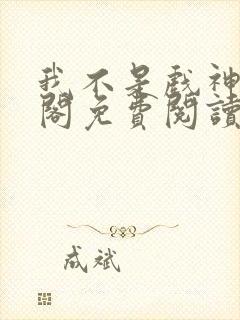 我不是戲神
閣免費閱讀
成斌